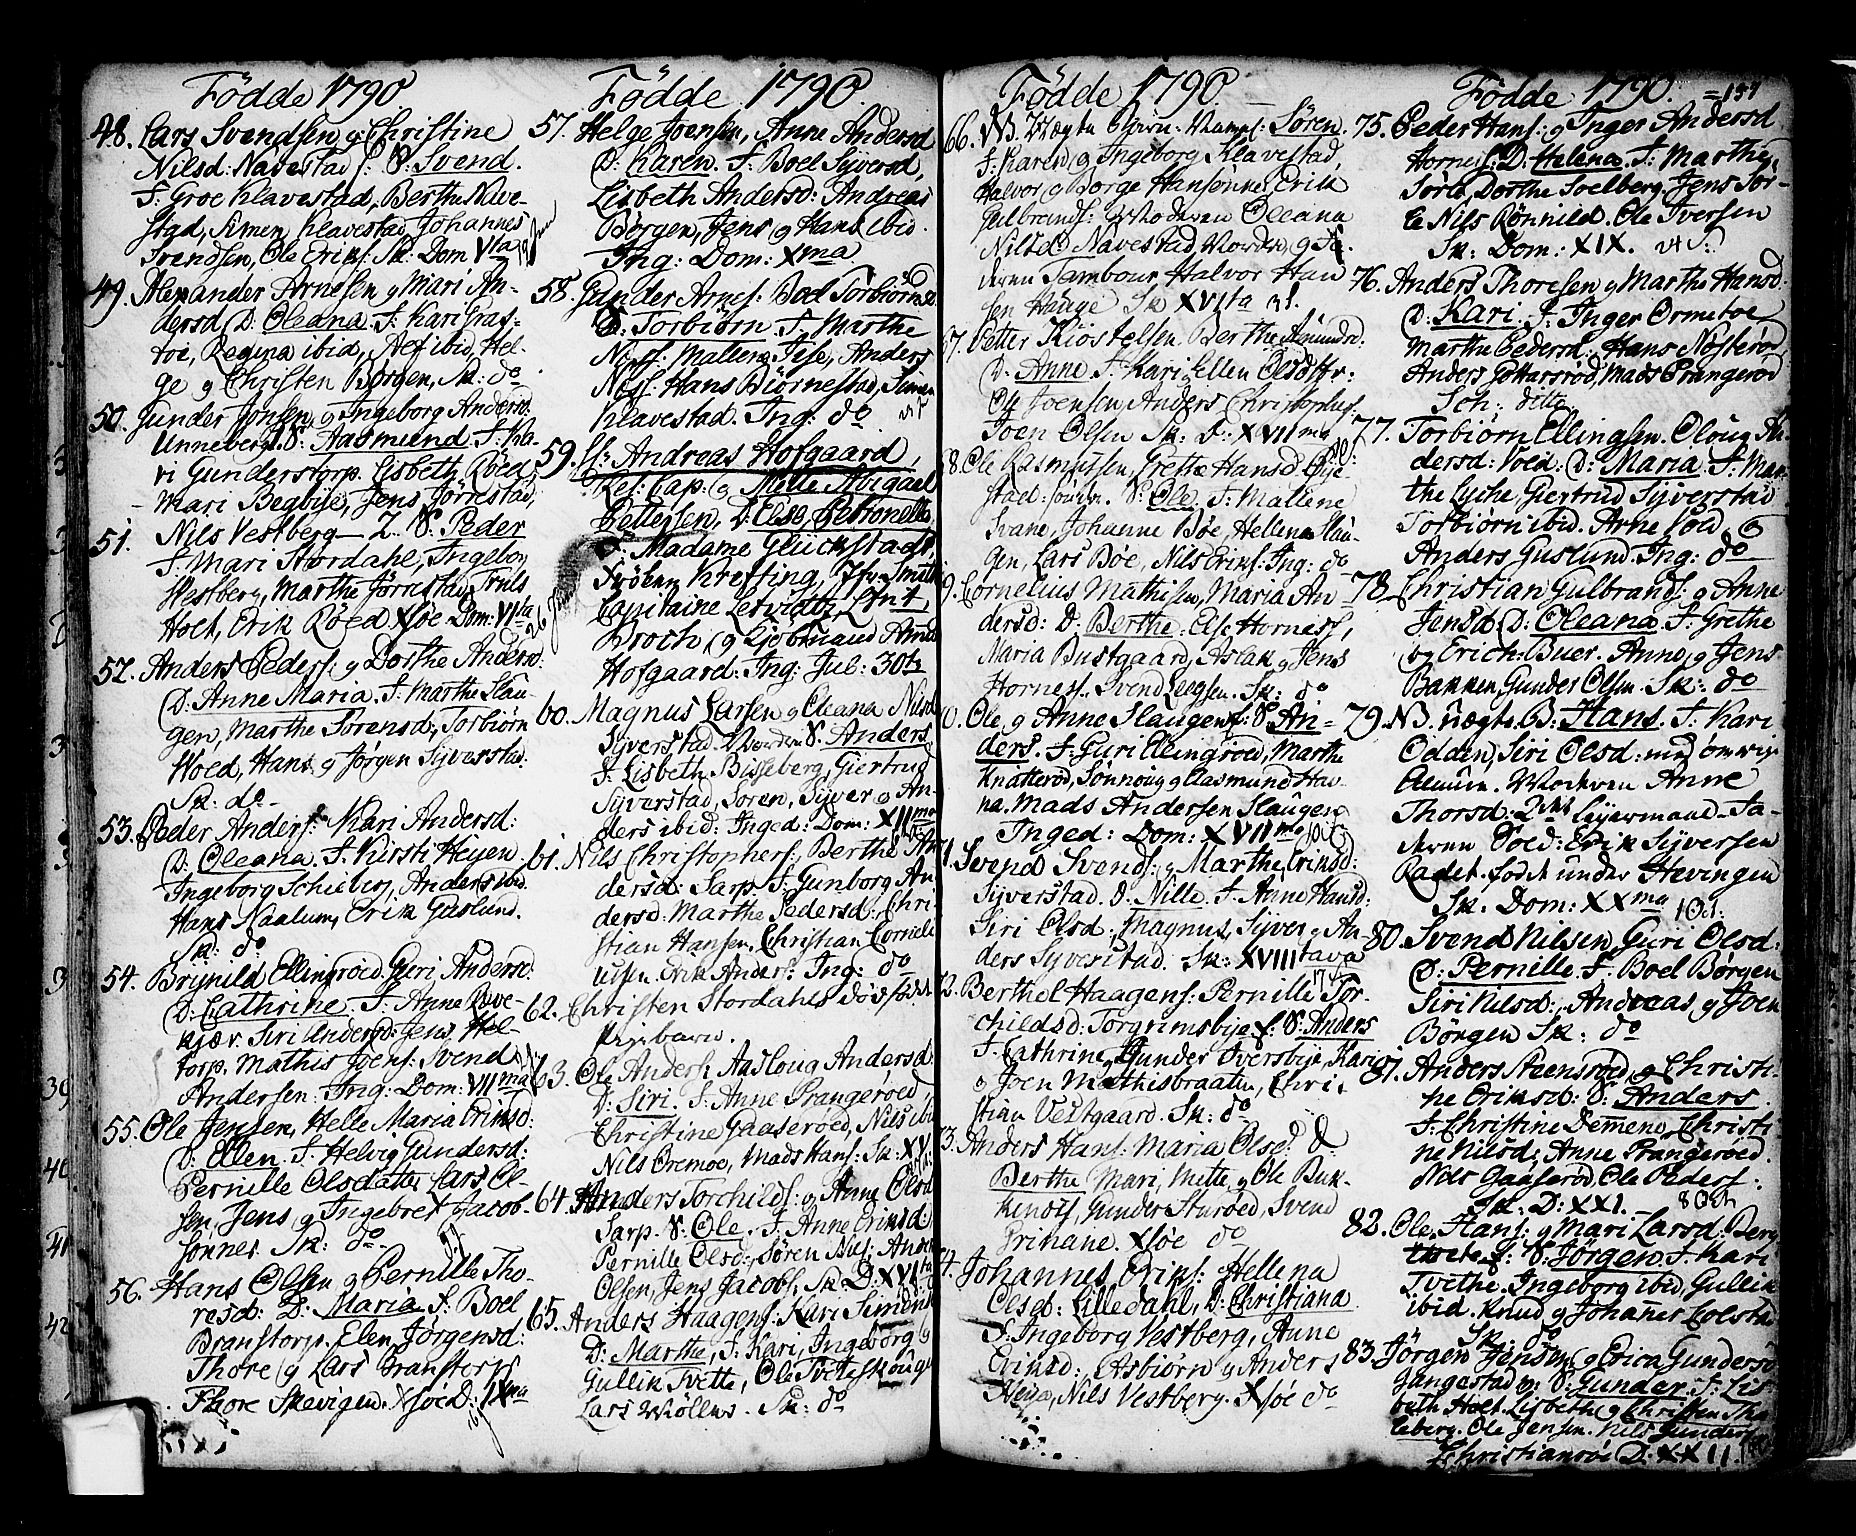 Födde 1790
48. Lars Svendsen og Christine
Nilsd: Navestad f: S: Svend.
F: Groe Klavestad, Berthe Nave-
stad, Simen Klavestad, Johannes
Svendsen, Ole Eriks: Sk: Dom VIta
49. Alexander Arnesen og Mari An-
dersd. D: Oleana. F: Kari Gras-
toe, Regina ibid, Alf ibid, Hel-
ge og Christen Börgen, Sk: do
50. Gunder Jonsen og Ingeborg Andersd:
Unneberg. S: Aasmund. F: Ka-
ri Gunderstorp. Lisbeth Röed
Mari Begbye, Jens Jörrestad,
51. Nils Vestberg - 2. S: Peder
F: Mari Stordahl, Ingebor
Westberg, Marthe Jörrestad, Truls
Holt, Erik Röed Xsöe Dom: VIta
52. Anders Peders: og Dorthe Andersd:
D: Anne Maria. F: Marthe Slau-
gen, Marthe Sörensd, Torbiörn
Woed, Hans og Jörgen Syverstad.
Sk: do -
53. Peder Anders: Kari Andersd:
D: Oleana. F: Kirsti Heyen
Ingeborg Schieberg, Anders ibid.
Hans Naalum, Erik Guslund.
Sk: do
54. Brynild Ellingröed. Guri Andersd:
D: Cathrine. F: Anne Rive-
kjær. Siri Andersd: Jens Hel-
torp. Mathis Joens: Svend
Andersen: Ing: Dom: VIIma
55. Ole Jensen, Helle Maria Eriksd:
D: Ellen. F: Helvig Gundersd:
Pernille Olsdatter Lars Ol-
sen, Jens og Ingebret Jacob-
sönner Sk: do
56. Hans Olsen og Pernille Tho-
resd: D: Maria F: Boel
Branstorp. Elen Jörgensd:
Thore og Lars Branstorp
Thore Skevigen. Xsöe D: IXma

Födde 1790.
57. Helge Joensen, Anne Andersd
D: Karen. F: Boel Syversd,
Lisbeth Andersd: Andreas
Börgen, Jens og Hans ibid.
Ing: Dom: Xma
58. Gunder Arnes: Bod Torbiörnsd
S: Torbiörn F: Marthe
Næss: Mallene Tise, Anders
Næss: Hans Biörnestad, Simen
Klavestad. Ing: do
59. Sr Andreas Hofgaard,
Res: Cap: og Mette Abigael
Pettersen, D: Else Petronelle
F: Madame Glückstadt,
Fröken Krefting, Jfr: Smith
Capitaine Letvidtz, Ltnt,
Broch og Kjöbmand Amd
Hofgaard: Ing: Jul: 30te
60. Magnus Larsen og Oleana Nilsd
Syverstad S: Anders
F: Lisbeth Bisseberg, Giertrug
Syverstad, Sören, Syver og An-
ders ibid: Inged: Dom: XIIma
61. Nils Christophers: Berthe An-
dersd: Sarp F: Gunborg An
dersd: Marthe Pedersd: Chri-
stian Hansen, Christian Corneli
usen Erik Anders: Ing: do
62. Christen Stordahls dödfödt
Pigebarn.
63. Ole Anders: Aasloug Andersd
D: Siri. F: Anne Prangeröed,
Christine Gaaseröed, Nils ibid
Nils Oremoe, Mads Hans: Sk: XV
64. Anders Torchilds: og Anne Olsd
Sarp. S: Ole. F: Anne Eriksd
Pernille Olsd: Sören Nils: Anders
Olsen, Jens Jacobs: Sk: D: XVIta
65. Anders Haagens: Kari Simens
D: Marthe, F: Kari, Ingeborg og
Gullik Tvette, Ole Tveteskougen
Lars Möllers. Sk: do

Födde 1790.
66. NB. Uægte Barn: Sören.
F: Karen og Ingeborg Klavestad,
Halvor og Borge Hansönner, Erik
Gulbrands: Moderen Oleana
Nilsd Navestad Norden, og Fa-
deren Tambour Halvor Han
sen Hauge Sk XVIta
67. Petter Kiöstelsen. Berthe Amundsd.
D: Anne F: Kari Ellen Olsdttr:
Joensen, Anders Christophs:
Joen Olsen Sk: D: XVIIma
68. Ole Rasmussen, Grethe Hansd
S: Ole F: Mallene
Svane, Johanne Böe, Hellene Slau-
gen, Lars Böe, Nils Eriks: Ing: do
69. Cornelius Mathisen, Maria An-
dersd: D: Berthe. Else Horness,
Maria Bustgaard, Aslak og Jens
Horness. Svend Leegsen. Sk: do
70. Ole og Anne Slaugen f: S: An-
ders. F: Guri Ellingröed, Marthe
Knatteröd, Sönnoug og Aasmund Hau-
na. Mads Andersen Slaugen
Inged: Dom: XVIIma
71. Svend Svends: og Marthe Eriksd:
Syverstad. D: Nille. F: Anne Hansd:
Siri Olsd: Magnus, Syver og An-
ders Syverstad. Sk: XVIIItava
72. Berthel Haagens: Pernille Tor-
childsd: Torgrimsbye f: S: Anders
F: Cathrine, Gunder Iversbye, Kari
og Joen Mathisbraaten, Chri-
stian Vestgaard. Sk: do
73. Anders Hans: Maria Olsd: D:
Berthe Mari, Mette, og Ole Buk-
kenols, Gunder Sturöed, Svend
Grihane. Xsöe do
74. Johannes Eriks: Hellena
Olsd: Lilledahl, D: Christiana
F: Ingeborg Vestberg, Anne
Eriksd: Asbiörn og Anders
Heyen, Nils Vestberg. Xsöe do

Födde 1790. =157
75. Peder Hans: og Inger Andersd
Horness. D: Helena. F: Marthe
Torle, Dorthe Soelberg. Jens Tor-
le Nils Rönnild. Ole Iversen
Sk: Dom: XIX.
76. Anders Thoresen og Marthe Hansd:
D: Kari. F: Inger Ormetoe
Marthe Pedersd: Hans Nösteröd
Anders Gottarsröd, Mads Prangeröd
Sch: ditto
77. Torbiörn Ellingsen. Oloug An-
dersd: Voed: D: Maria. F: Mar
the Lyche, Giertrud Syverstad
Torbiörn ibid. Arne Voed og
Anders Guslund. Ing: do
78. Christian Gulbrands: og Anne
Jensd D: Oleana. F: Grethe
og Erich Buer. Anne og Jens
Bakken, Gunder Olsen. Sk: do
79. NB. uægte B: Hans. F: Kari
Odden, Siri Olsd:
Almüe. Moderen Anne
Thorsd: 2det Leyermaal. Fa-
deren Soed: Erik Syversen
Radet. födt under Hevingen
Sk. Dom: XXma
80. Svend Nilsen, Guri Olsd:
D: Pernille F: Boel Börgen
Siri Nilsd: Andreas og Joen
Börgen Sk: do
81. Anders Steensröd og Christi-
ne Eriksd: S: Anders.
F: Christine Demene, Christi-
ne Nilsd: Anne Prangeröed.
Nils Gaaseröd, Ole Peders:
Sk: D: XXI. 3 Oct
82. Ole Hans: og Mari Larsd: Berg
S: Jörgen F: Kari
Tvethe. Ingeborg ibid, Gullik
ibid. Knud og Johannes
Sk: do
83. Jörgen Jensen og Erica Gundersd
Gangestad S: Gunder. F: Lis-
beth Holt. Lisbeth og Christen Tha
leberg. Ole Jensen. Nils Gunders:
Christiansöe D: XXII